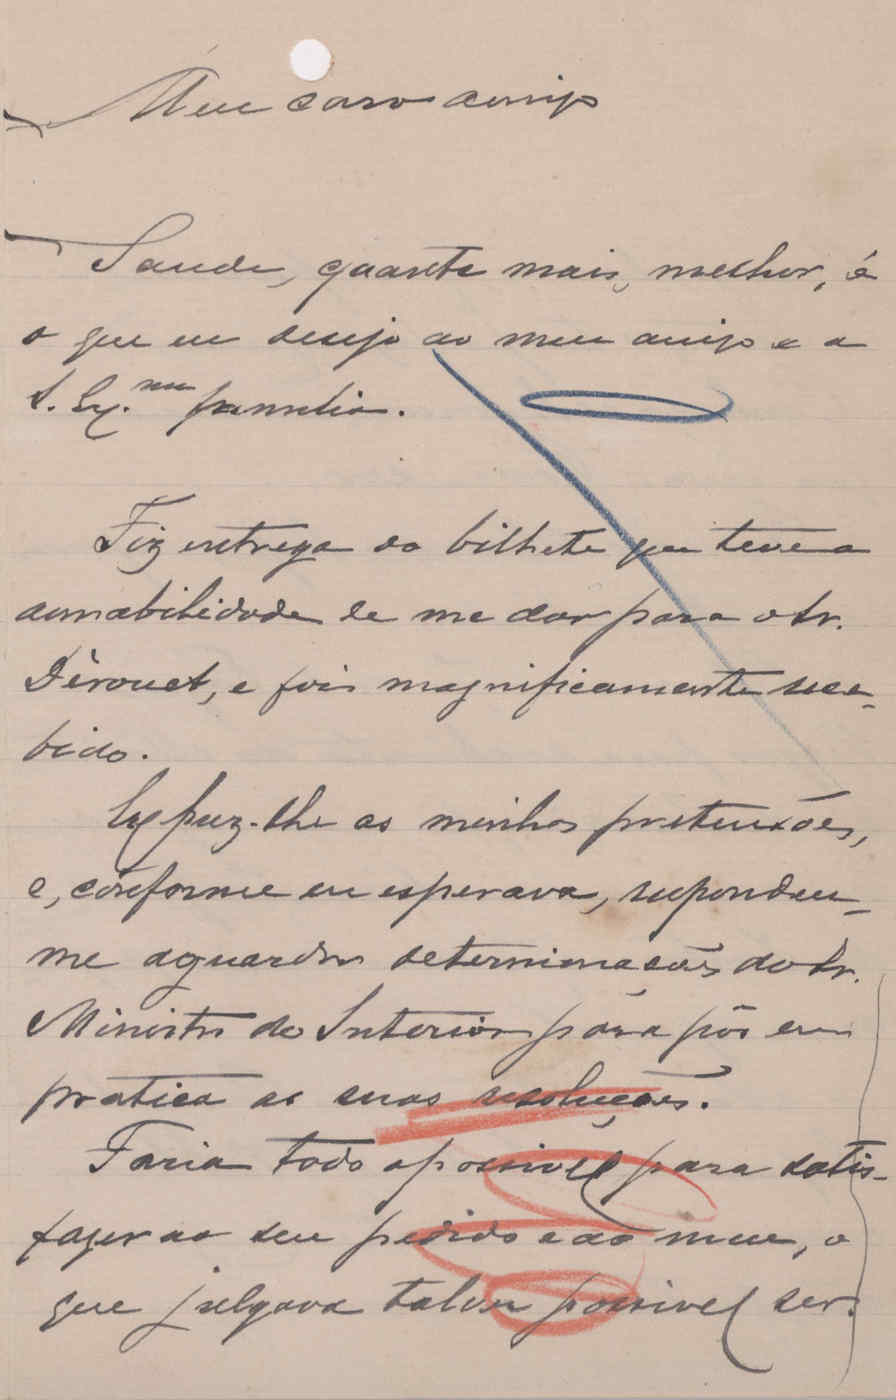 Meu caro amigo
Saude, quanto mais, melhor, é
o que eu desejo ao meu amigo e a
S. Ex.ma familia.
Fiz entrega do bilhete que teve a
amabilidade de me dar para o Sr.
Dérouet, e fois magnificamente rece-
bido.
Expuz-lhe as minhas pretensões,
e, conforme eu esperava, respondeu-
me aguardar determinações do Sr.
Ministro do Interior pára pôr em
pratica as suas resoluções.
Faria todo o possivel para satis-
fazer ao seu pedido e ao meu, o
que julgava talvez possivel ser.